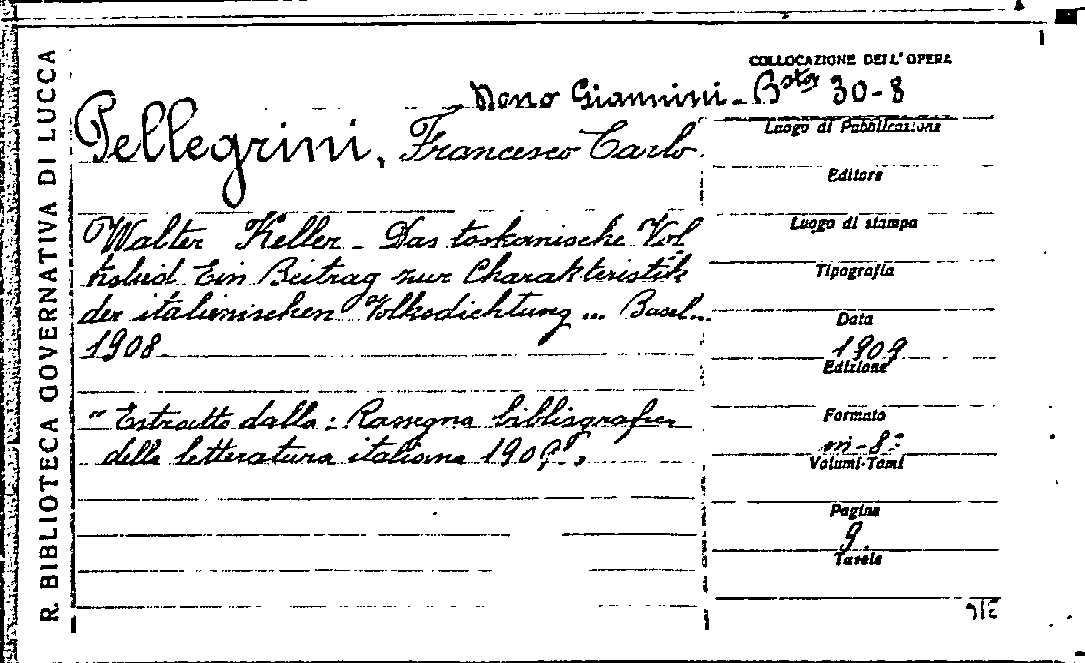 R. BIBLIOTECA GOVERNATIVA DI LUCCA
COLLOCAZIONE DELL'OPERA
Giannini - Bsta 30-8
Pellegrini, Francesco Carlo
Walter Keller - Das toskanische Vol
kslied Ein Beitrag zur Charakteristik
der italienischen Volksdichtung ... Basel..
1908
"Estratto dalla: Rassegna bibliografica
della letteratura italiana 1909".
Luogo di Pubblicazione
Editore
Luogo di stampa
Tipografia
Data
1909
Edizione
Formato
in-8º
Volumi-Tomi
Pagine
9.
Tavole